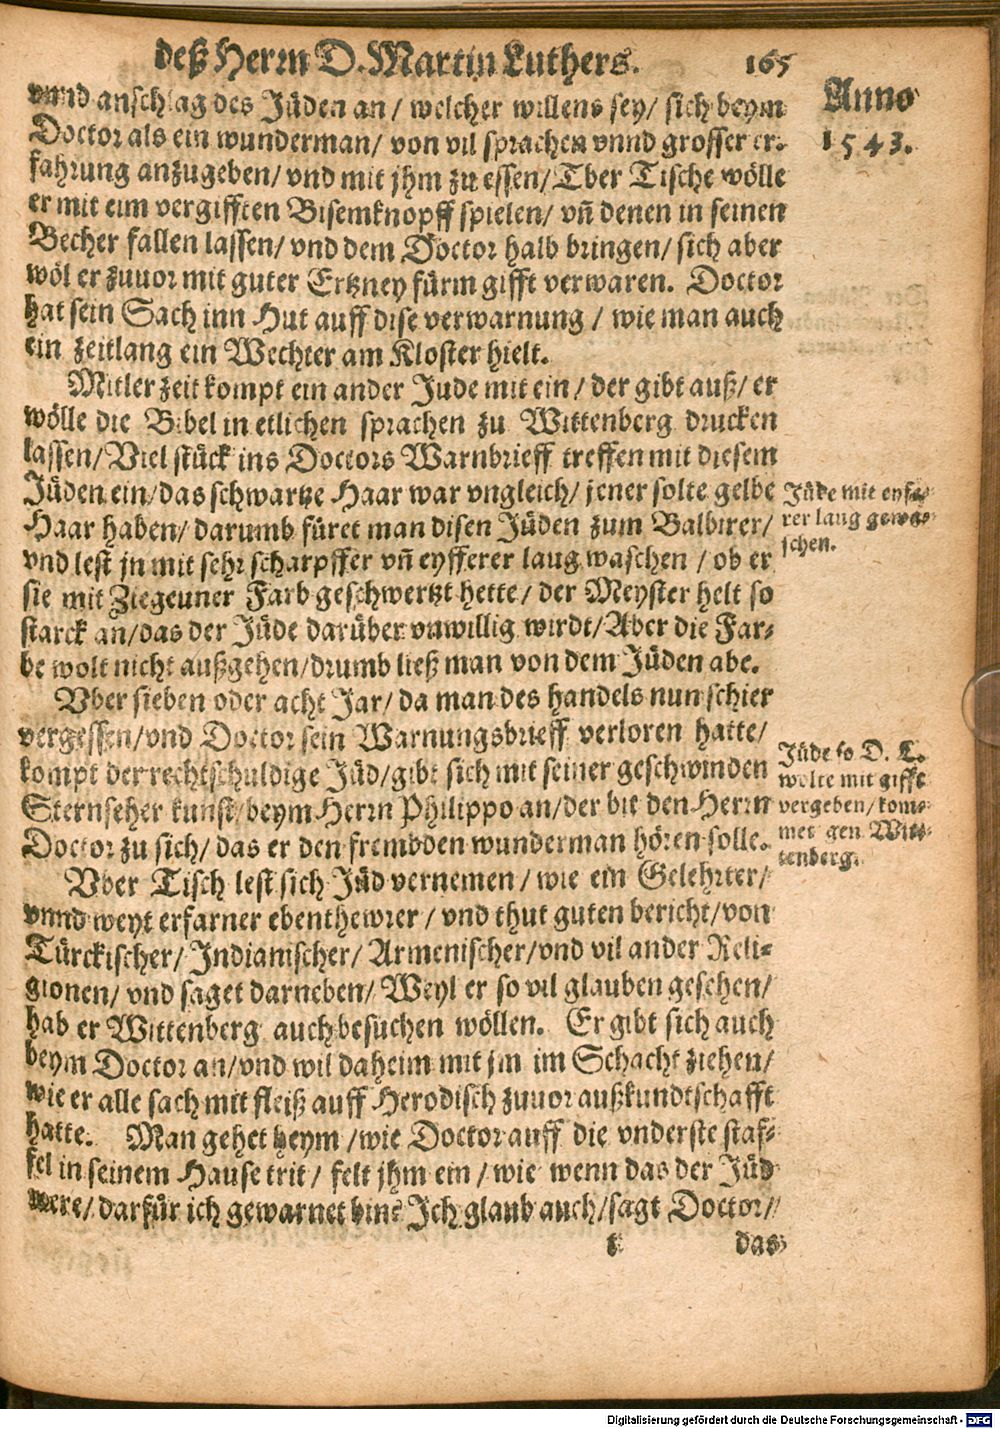 deß Herrn D. Martin Luthers. 165
Anno
1543.
vnnd anschlag des Jüden an / welcher willens sey / sich beym
Doctor als ein wunderman / von vil sprachen vnnd grosser er-
fahrung anzugeben / vnd mit jhm zu essen / Vber Tische wölle
er mit eim vergifften Bisemknopff spielen / vñ denen in seinen
Becher fallen lassen / vnd dem Doctor halb bringen / sich aber
wöl er zuuor mit guter Ertzney fürm gifft verwaren. Doctor
hat sein Sach inn Hut auff dise verwarnung / wie man auch
ein zeitlang ein Wechter am Kloster hielt.
Mitler zeit kompt ein ander Jude mit ein / der gibt auß / er
wölle die Bibel in etlichen sprachen zu Wittenberg drucken
lassen / Viel stück ins Doctors Warnbrieff treffen mit diesem
Jüden ein / das schwartze Haar war vngleich / jener solte gelbe
Haar haben / darumb füret man disen Jüden zum Balbirer /
vnd lest jn mit sehr scharpffer vñ eyfferer laug waschen / ob er
sie mit Ziegeuner Farb geschwertzt hette / der Meyster helt so
starck an / das der Jüde darüber vnwillig wirdt / Aber die Far-
be wolt nicht außgehen / drumb ließ man von dem Jüden abe.
Jüde mit eyfe-
rer laug gewa-
schen.
Vber sieben oder acht Jar / da man des handels nun schier
vergessen / vnd Doctor sein Warnungsbrieff verloren hatte /
kompt der rechtschuldige Jüd / gibt sich mit seiner geschwinden
Sternseher kunst / beym Herrn Philippo an / der bit den Herrn
Doctor zu sich / das er den frembden wunderman hören solle.
Jüde so D. L.
wolte mit gifft
vergeben / kom-
met gen Witt-
tenberg.
Vber Tisch lest sich Jüd vernemen / wie ein Gelehrter /
vnnd weyt erfarner ebenthewrer / vnd thut guten bericht / von
Türckischer / Indianischer / Armenischer / vnd vil ander Reli-
gionen / vnd saget darneben / Weyl er so vil glauben gesehen /
hab er Wittenberg auch besuchen wöllen. Er gibt sich auch
beym Doctor an / vnd wil daheim mit jm im Schacht ziehen /
wie er alle sach mit fleiß auff Herodisch zuuor außkundtschafft
hatte. Man gehet heym / wie Doctor auff die vnderste staf-
fel in seinem Hause trit / felt jhm ein / wie wenn das der Jüd
were / darfür ich gewarnet bin? Ich glaub auch / sagt Doctor /
t das
Digitalisierung gefördert durch die Deutsche Forschungsgemeinschaft - DFG